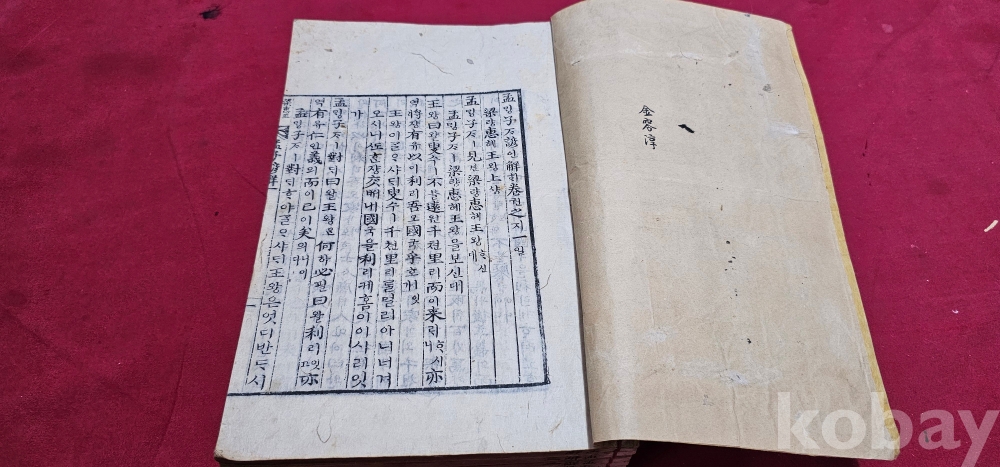 金容淳
孟ᄆᆡᆼ子ᄌᆞ諺언解ᄒᆡ卷권之지一일
梁량惠혜王왕上샹
孟ᄆᆡᆼ子ᄌᆞㅣ見견梁량惠혜王왕ᄒᆞ신대
孟ᄆᆡᆼ子ᄌᆞㅣ梁량惠혜王왕을보신대
王왕曰왈叟수ㅣ不블遠원千쳔里리而이來ᄅᆡᄒᆞ시니亦
역將쟝有유以이利리吾오國국乎호잇가
王왕이ᄀᆞᆯᄋᆞ샤ᄃᆡ叟수ㅣ千쳔里리ᄅᆞᆯ멀리아니너겨
오시니ᄯᅩᄒᆞᆫ쟝ᄎᆞᆺ내國국을利리케홈이이시리잇
가
孟ᄆᆡᆼ子ᄌᆞㅣ對ᄃᆡ曰왈王왕은何하必필曰왈利리잇고亦
역有유仁인義의而이已이矣의니이다
孟ᄆᆡᆼ子ᄌᆞㅣ對ᄃᆡᄒᆞ야ᄀᆞᆯᄋᆞ샤ᄃᆡ王왕은엇디반ᄃᆞ시
孟子諺解
kobay